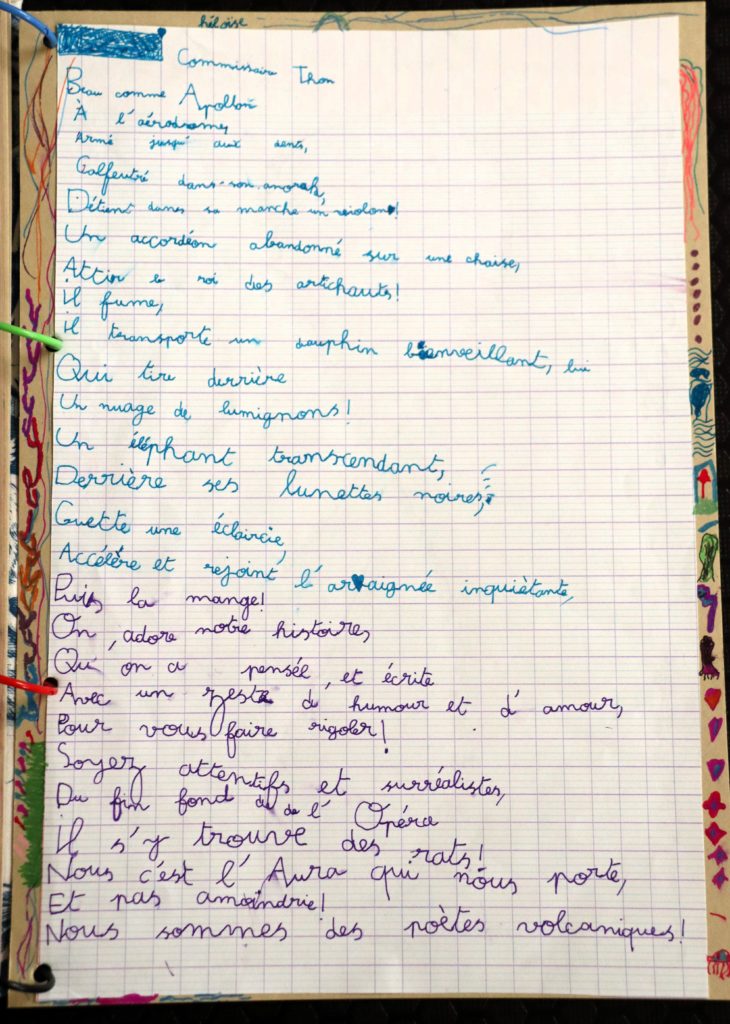 héloïse
Commissaire Thon
Beau comme Apollon
À l'aérodrome,
Armé jusqu' aux dents,
Calfeutré dans son anorak,
Détient dans sa manche un violon!
Un accordéon abandonné sur une chaise,
Attire le roi des artichauts!
Il fume,
il transporte un dauphin bienveillant, lui
Qui tire derrière
Un nuage de lumignons!
Un éléphant transcendant,
Derrière ses lunettes noires,
Guette une éclaircie,
Accélère et rejoint l'araignée inquiètante,
Puis la mange!
On adore notre histoires,
Qu' on a pensée, et écrite
Avec un zeste de humour et d' amour,
Pour vous faire rigoler!
Soyez attentifs et surréalistes,
Du fin fond de l' Opéra
Il s'y trouve des rats!
Nous c'est l' Aura qui nous porte,
Et pas amoindrie!
Nous sommes des poètes volcaniques!